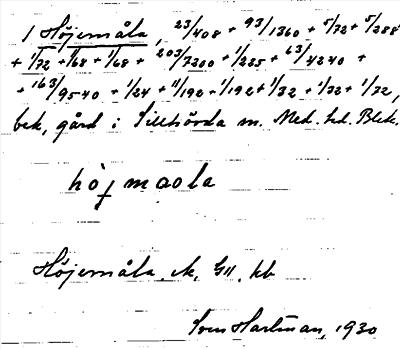 1 Höjemåla, 23/408 + 93/1360 + 5/72 + 5/288
+ 1/72 + 1/68 + 1/68 + 203/7200 + 1/225 + 63/4240 +
+ 163/9540 + 1/24 + 11/192 + 1/192 + 1/32 + 1/32 + 1/32,
bek, gård i Sillhövda sn. Med. hd. Blek.
höjmaola
Höjemåla
Sven Hartman, 1930